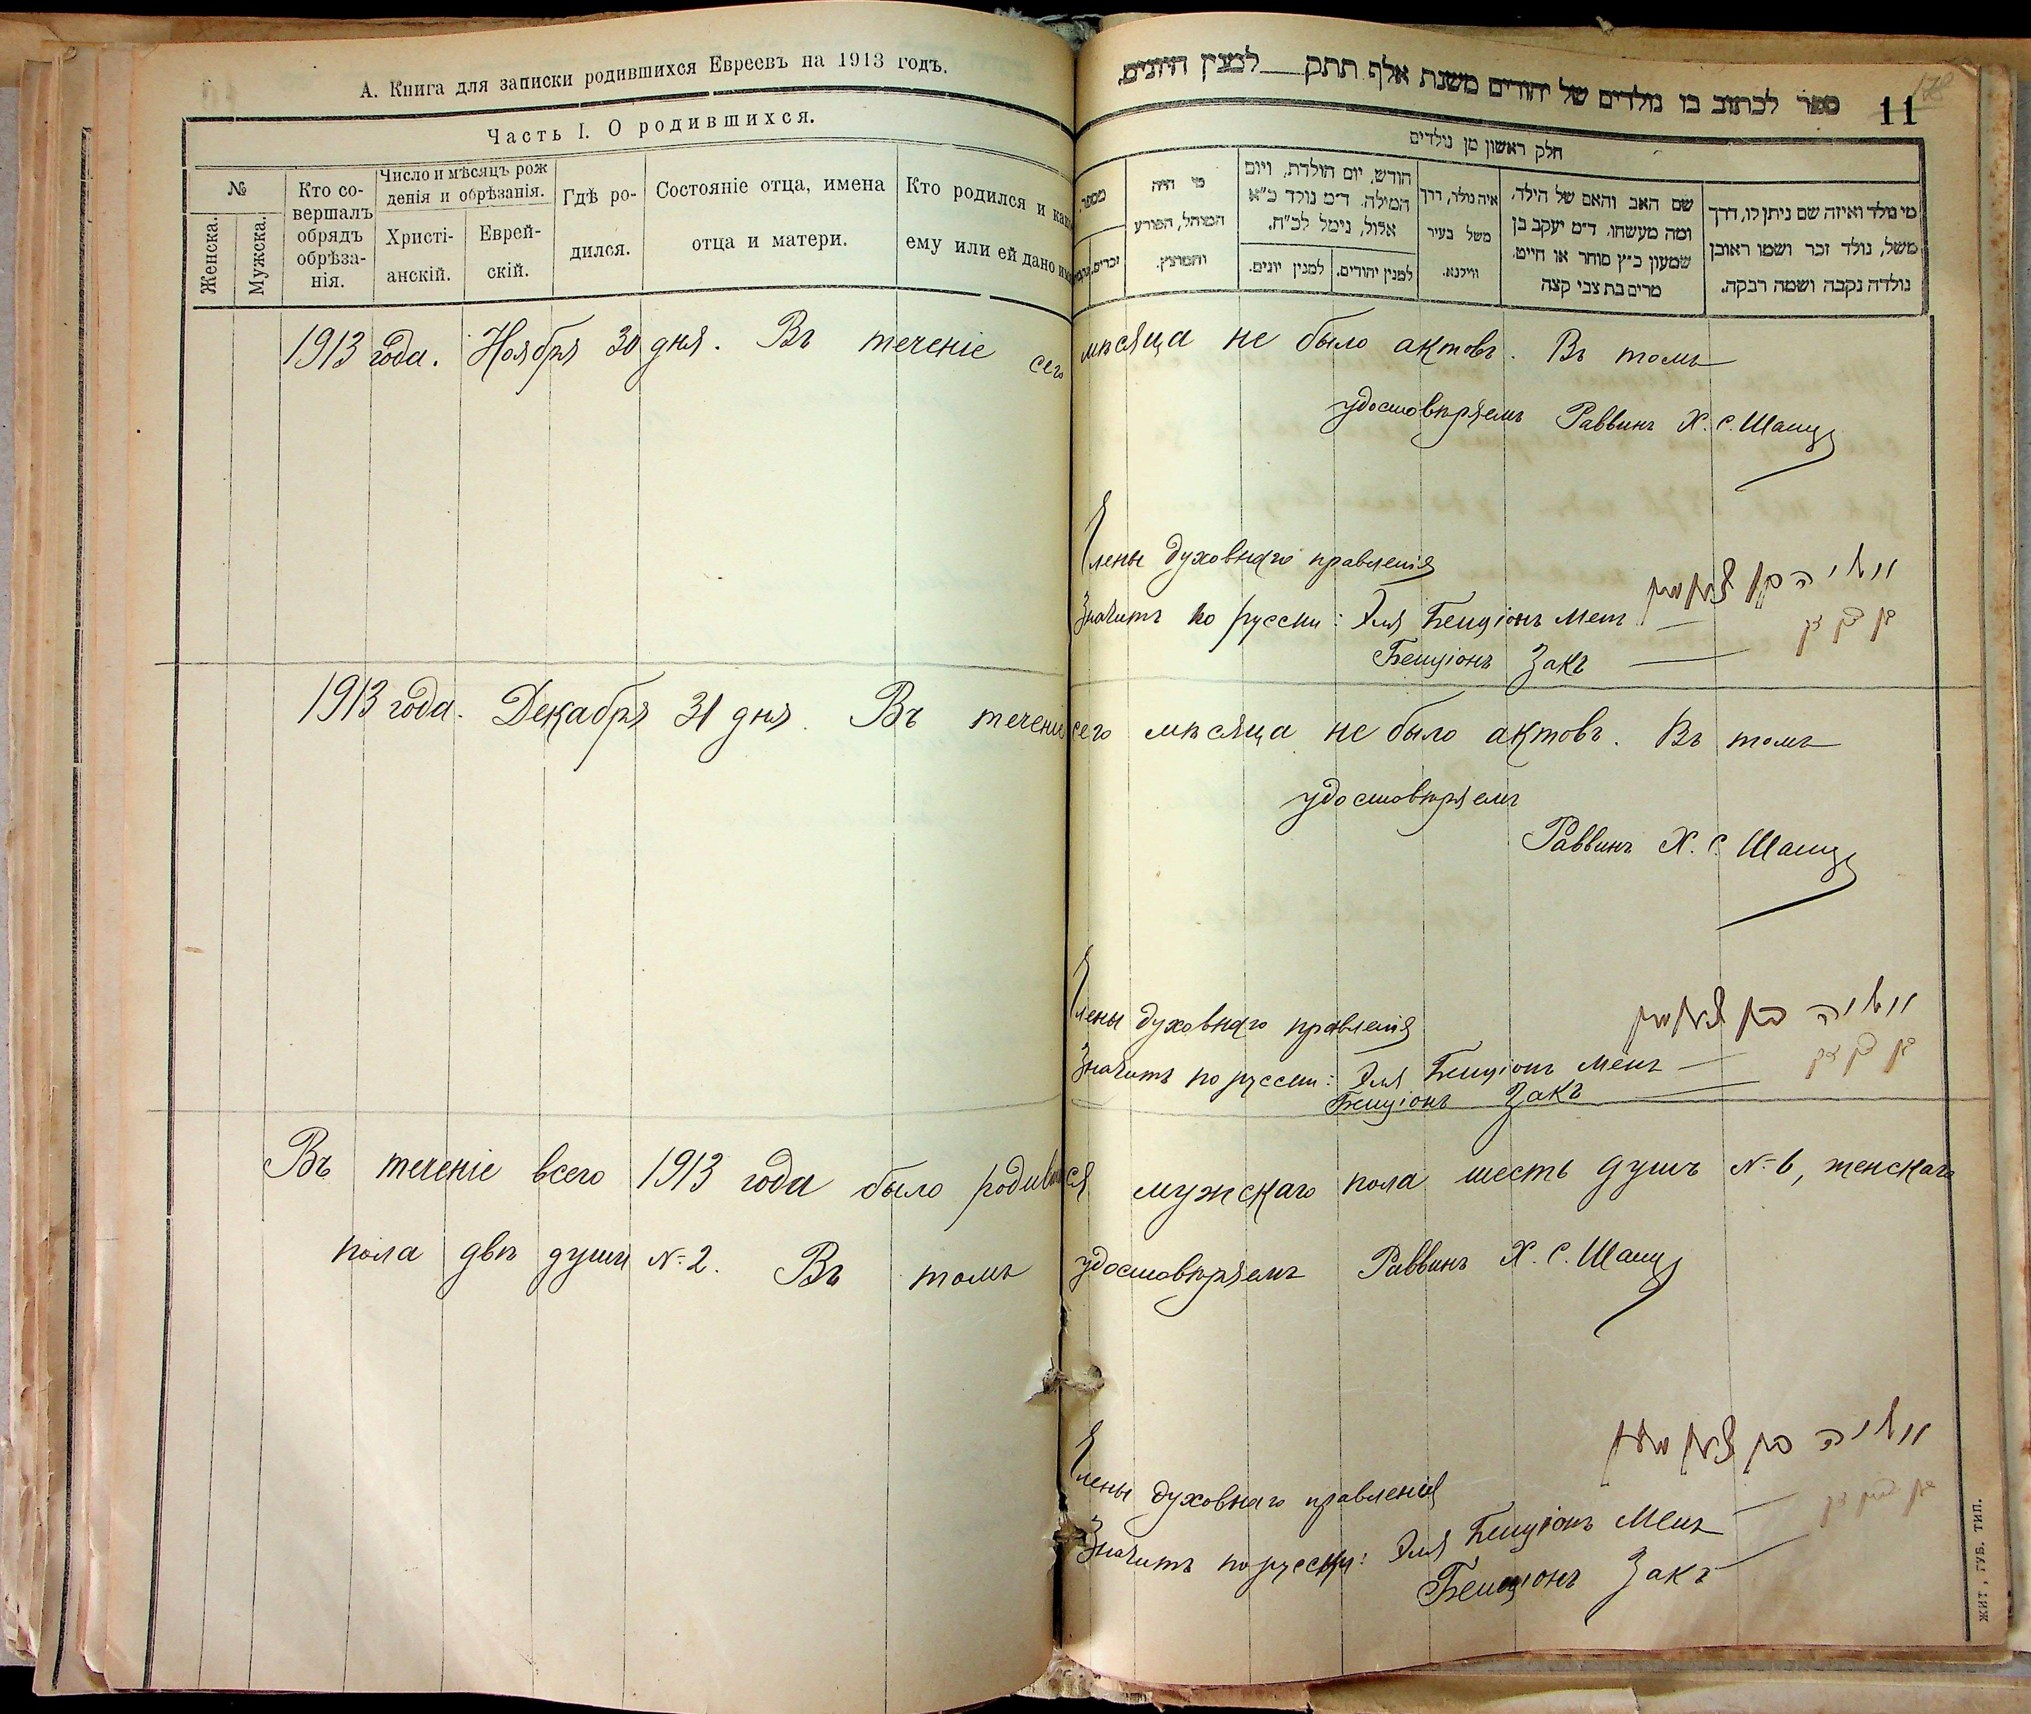 А. Книга для записки родившихся Евреевъ на 1913 годъ.
Часть I. О родившихся.
№
Женска.
Мужска.
Кто со-
вершалъ
обрядъ
обрѣза-
нія.
Число и мѣсяцъ рож
денія и обрѣзанія.
Христі-
анскій.
Еврей-
скій.
Гдѣ ро-
дился.
Состояніе отца, имена
отца и матери.
Кто родился и како
ему или ей дано имя
ספר לכתוב בו נולדים של יהודים משנת אלף תתק למנין היונים.
11
חלק ראשון מן נולדים
מספר.
זכרים.
מי היה
המוהל, הפורע
והמוצץ.
חודש, יום הולדת, ויום
המילה. ד״מ נולד כ״א
אלול, נימל לכ״ח.
למנין יונים.
למנין יהודים.
איה נולד, דרך
משל בעיר
ווילנא.
שם האב והאם של הילד,
ומה מעשהו. ד״מ יעקב בן
שמעון כ״ץ סוחר או חייט,
מרים בת צבי קצה
מי נולד ואיזה שם ניתן לו, דרך
משל, נולד זכר ושמו ראובן
נולדה נקבה ושמה רבקה.
1913 года. Ноября 30 дня. Въ теченіе сего мѣсяца не было актовъ. Въ томъ
удостовѣряемъ Раввинъ Х. С. Шапиз
Члены духовнаго правленія
Значитъ по русски: Эля Бенціонъ Мень
Бенціонъ Закъ
1913 года. Декабря 31 дня. Въ теченіе сего мѣсяца не было актовъ. Въ томъ
удостовѣряемъ
Раввинъ Х. С.
Члены духовнаго правленія
Значитъ по русски: Эля Бенціонъ Менъ
Бенціонъ Закъ
Въ теченіе всего 1913 года было родившихся мужскаго пола шесть душъ №6, женскаго
пола двѣ души №2. Въ томъ удостовѣряемъ Раввинъ Х. С.
Члены духовнаго правленія
Значитъ по русски: Эля Бенціонъ Менъ
Бенціонъ Закъ
ЖИТ, ГУБ. ТИП.